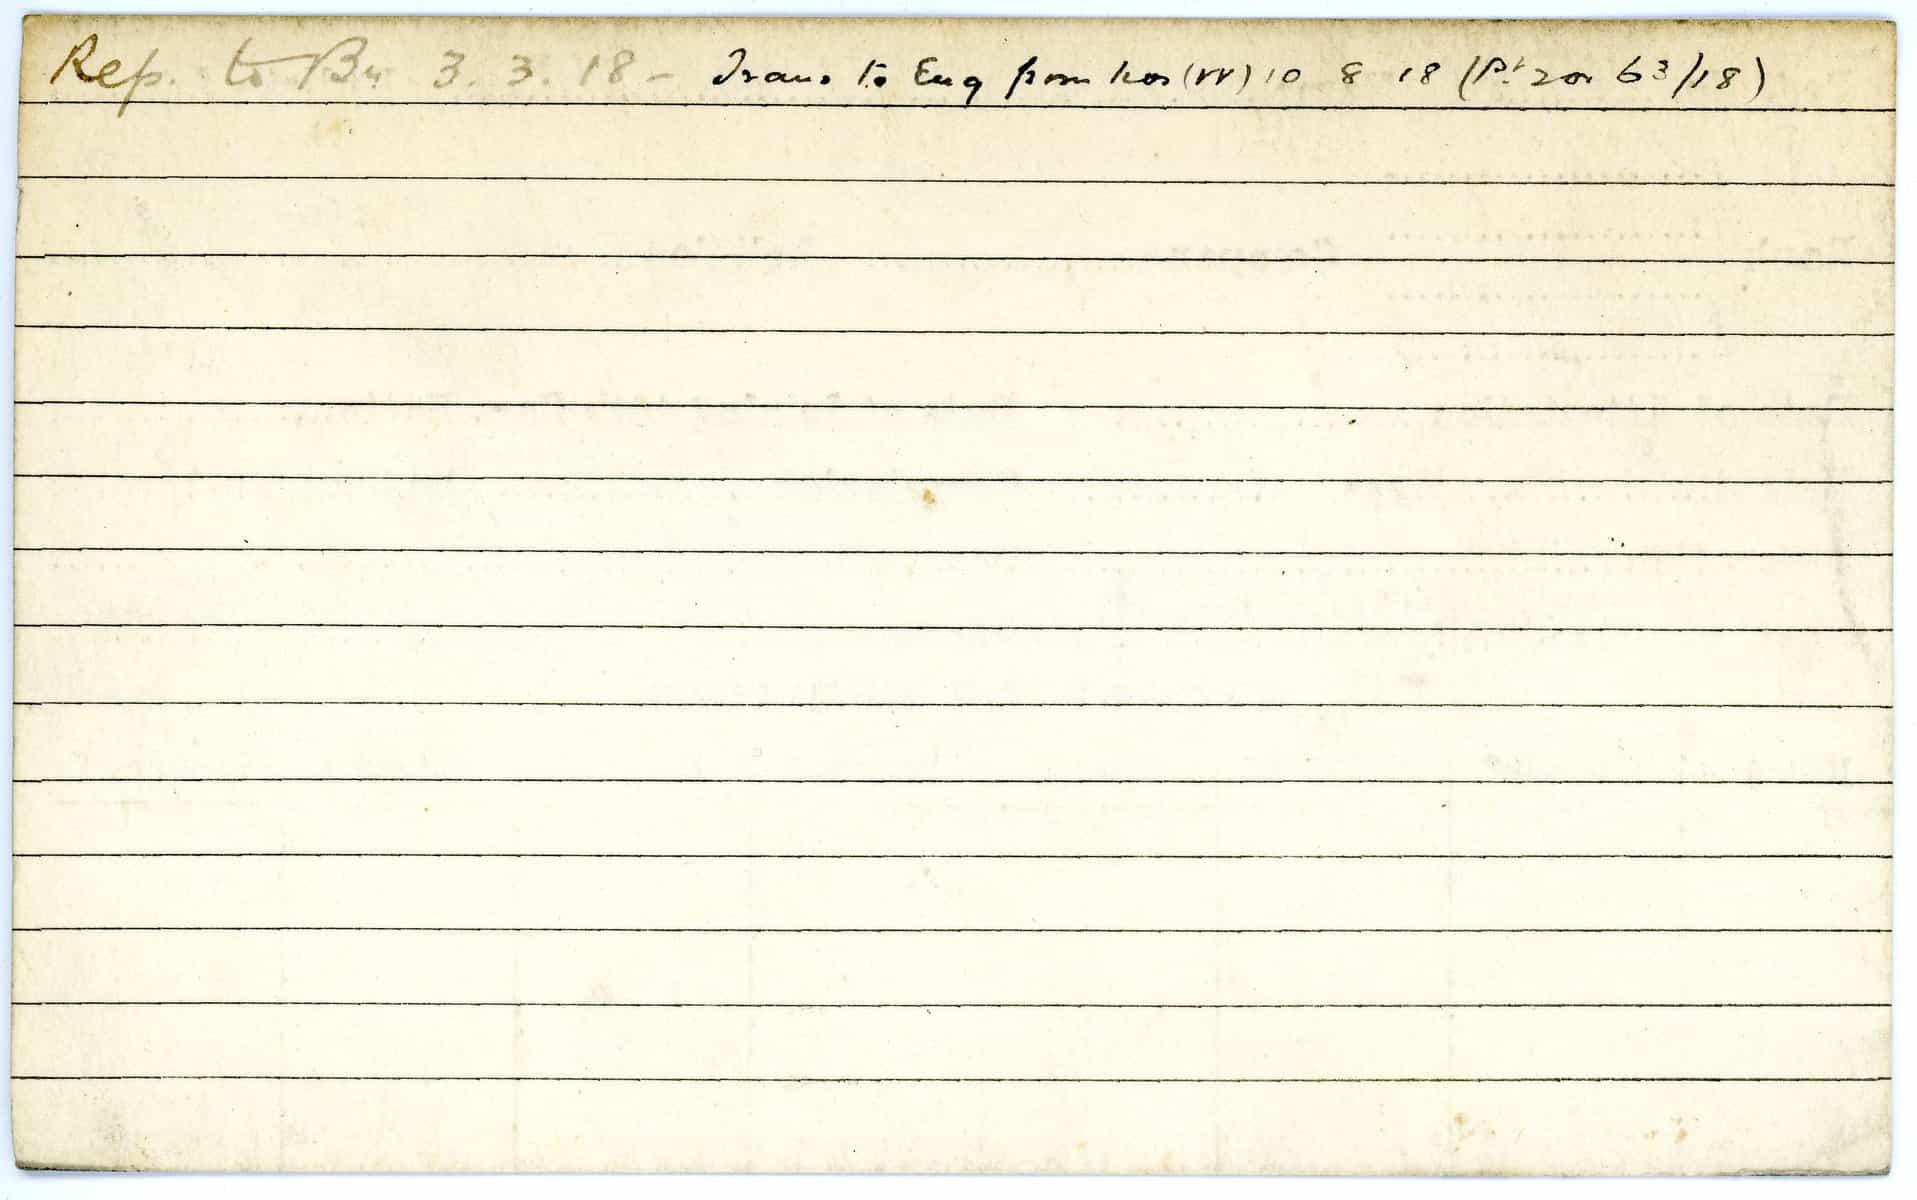 Rep. to Bn 3. 3. 18 - Trans to Eng from Hos (W) 10 8 18 (Pt 2 or 63/18)